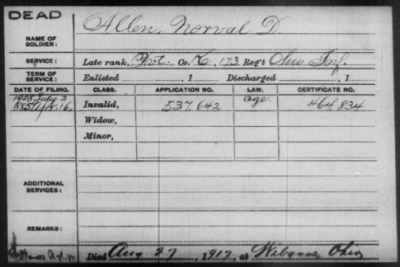 DEAD
NAME OF SOLDIER: Allen, Norval D.
SERVICE: Late rank, Pvt. Co. K, 173 Reg't Ohio Inf.
TERM OF SERVICE: Enlisted , 1 Discharged , 1
DATE OF FILING. CLASS. APPLICATION NO. LAW. CERTIFICATE NO.
1908 July 3
1885 Apr. 16 Invalid, 537,642 age 464,834
Widow,
Minor,
ADDITIONAL SERVICES:
REMARKS:
Died Aug 27, 1917, at Ohio